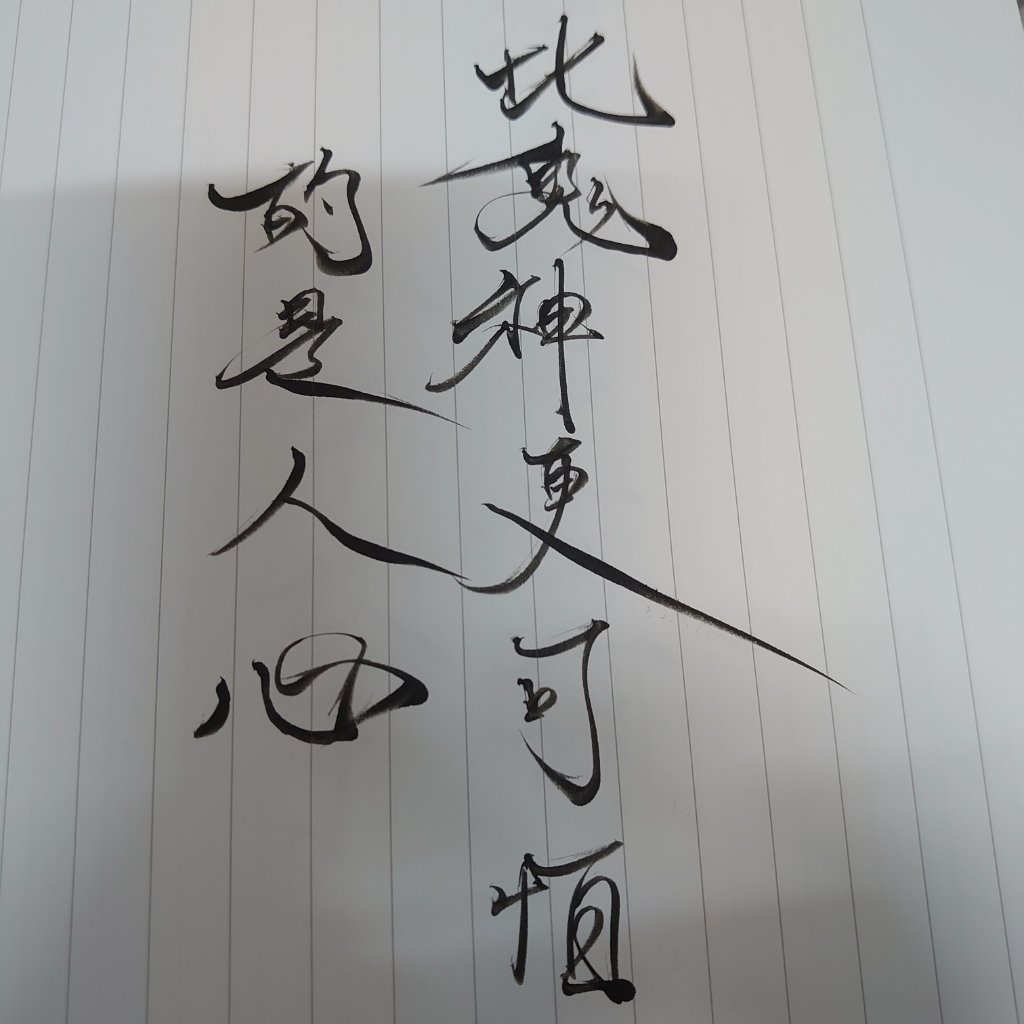 比鬼神更可怕
的是人心